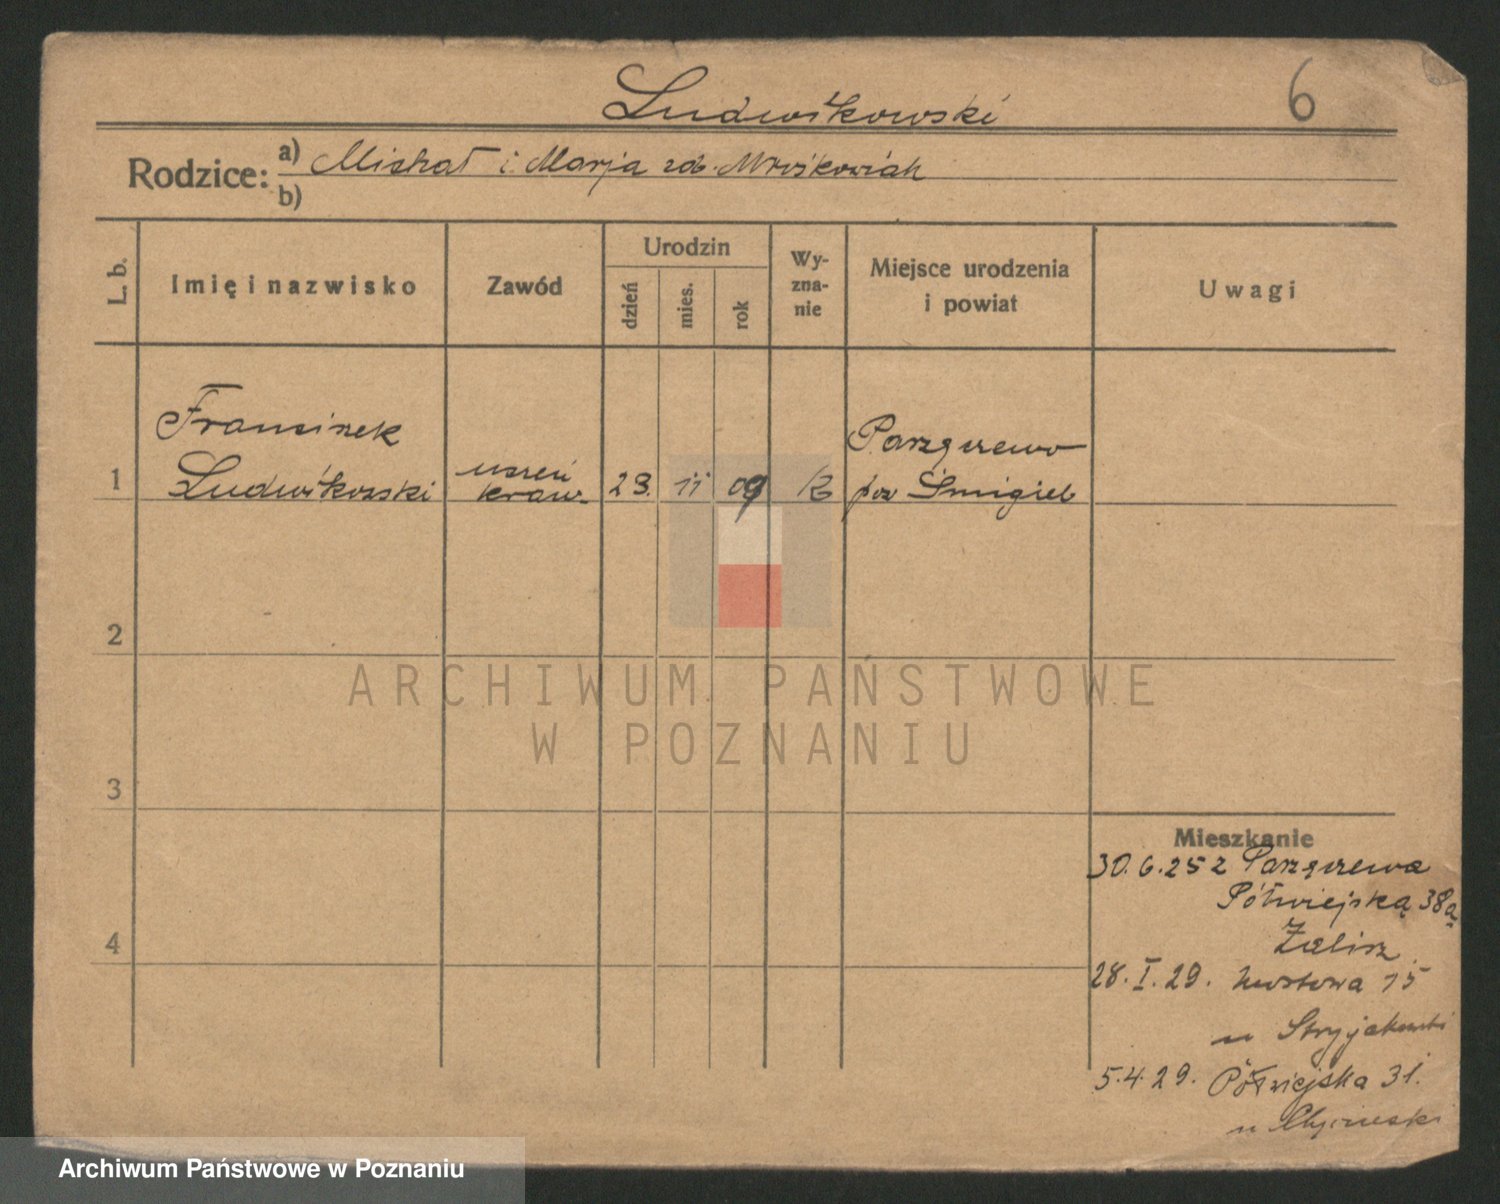 Ludwikowski
6
Rodzice: a) Michał i Marja rob. Mroskowiak
b)
L. b.
Imię i nazwisko
Zawód
Urodzin
dzień
mies.
rok
Wy-
zna-
nie
Miejsce urodzenia
i powiat
Uwagi
1
Franciszek
Ludwikowski
uczeń
kraw.
23.
11
09
K
Parzęczewo
pow Śmigiel
2
3
4
ARCHIWUM PAŃSTWOWE
W POZNANIU
Mieszkanie
30.6.25 z Parzęczewa
Półwiejską 38a
28.I.29. 15
u Stryjakowski
5.4.29. Półwiejska 31.
u
Archiwum Państwowe w Poznaniu